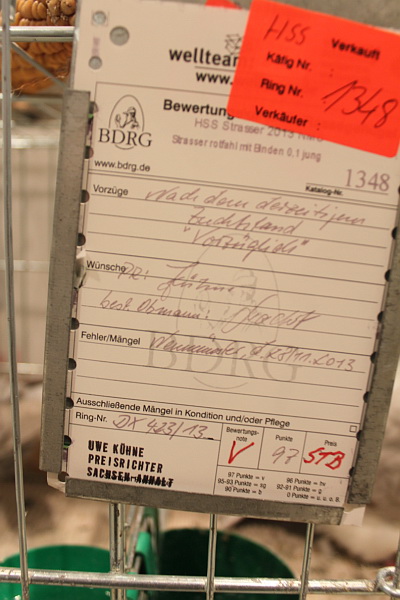 HSS Verkauft
Käfig Nr.
Ring Nr. 1348
Verkäufer
wellteam
www.
Bewertung
HSS Strasser 2013
Strasser rotfahl mit Binden 0,1 jung
BDRG
www.bdrg.de
Katalog-Nr. 1348
Vorzüge Nach dem derzeitigen
Zuchtstand
"Vorzüglich"
Wünsche PR: Kühne
best. Obmann:
Fehler/Mängel Neumünster, d. 28.11.2013
BDRG
Ausschließende Mängel in Kondition und/oder Pflege
Ring-Nr. DX 423/13
Bewertungs-note V
Punkte 97
Preis STB
UWE KÜHNE
PREISRICHTER
SACHSEN-ANHALT
97 Punkte = v 96 Punkte = hv
95-93 Punkte = sg 92-91 Punkte = g
90 Punkte = b 0 Punkte = u. u. o. B.